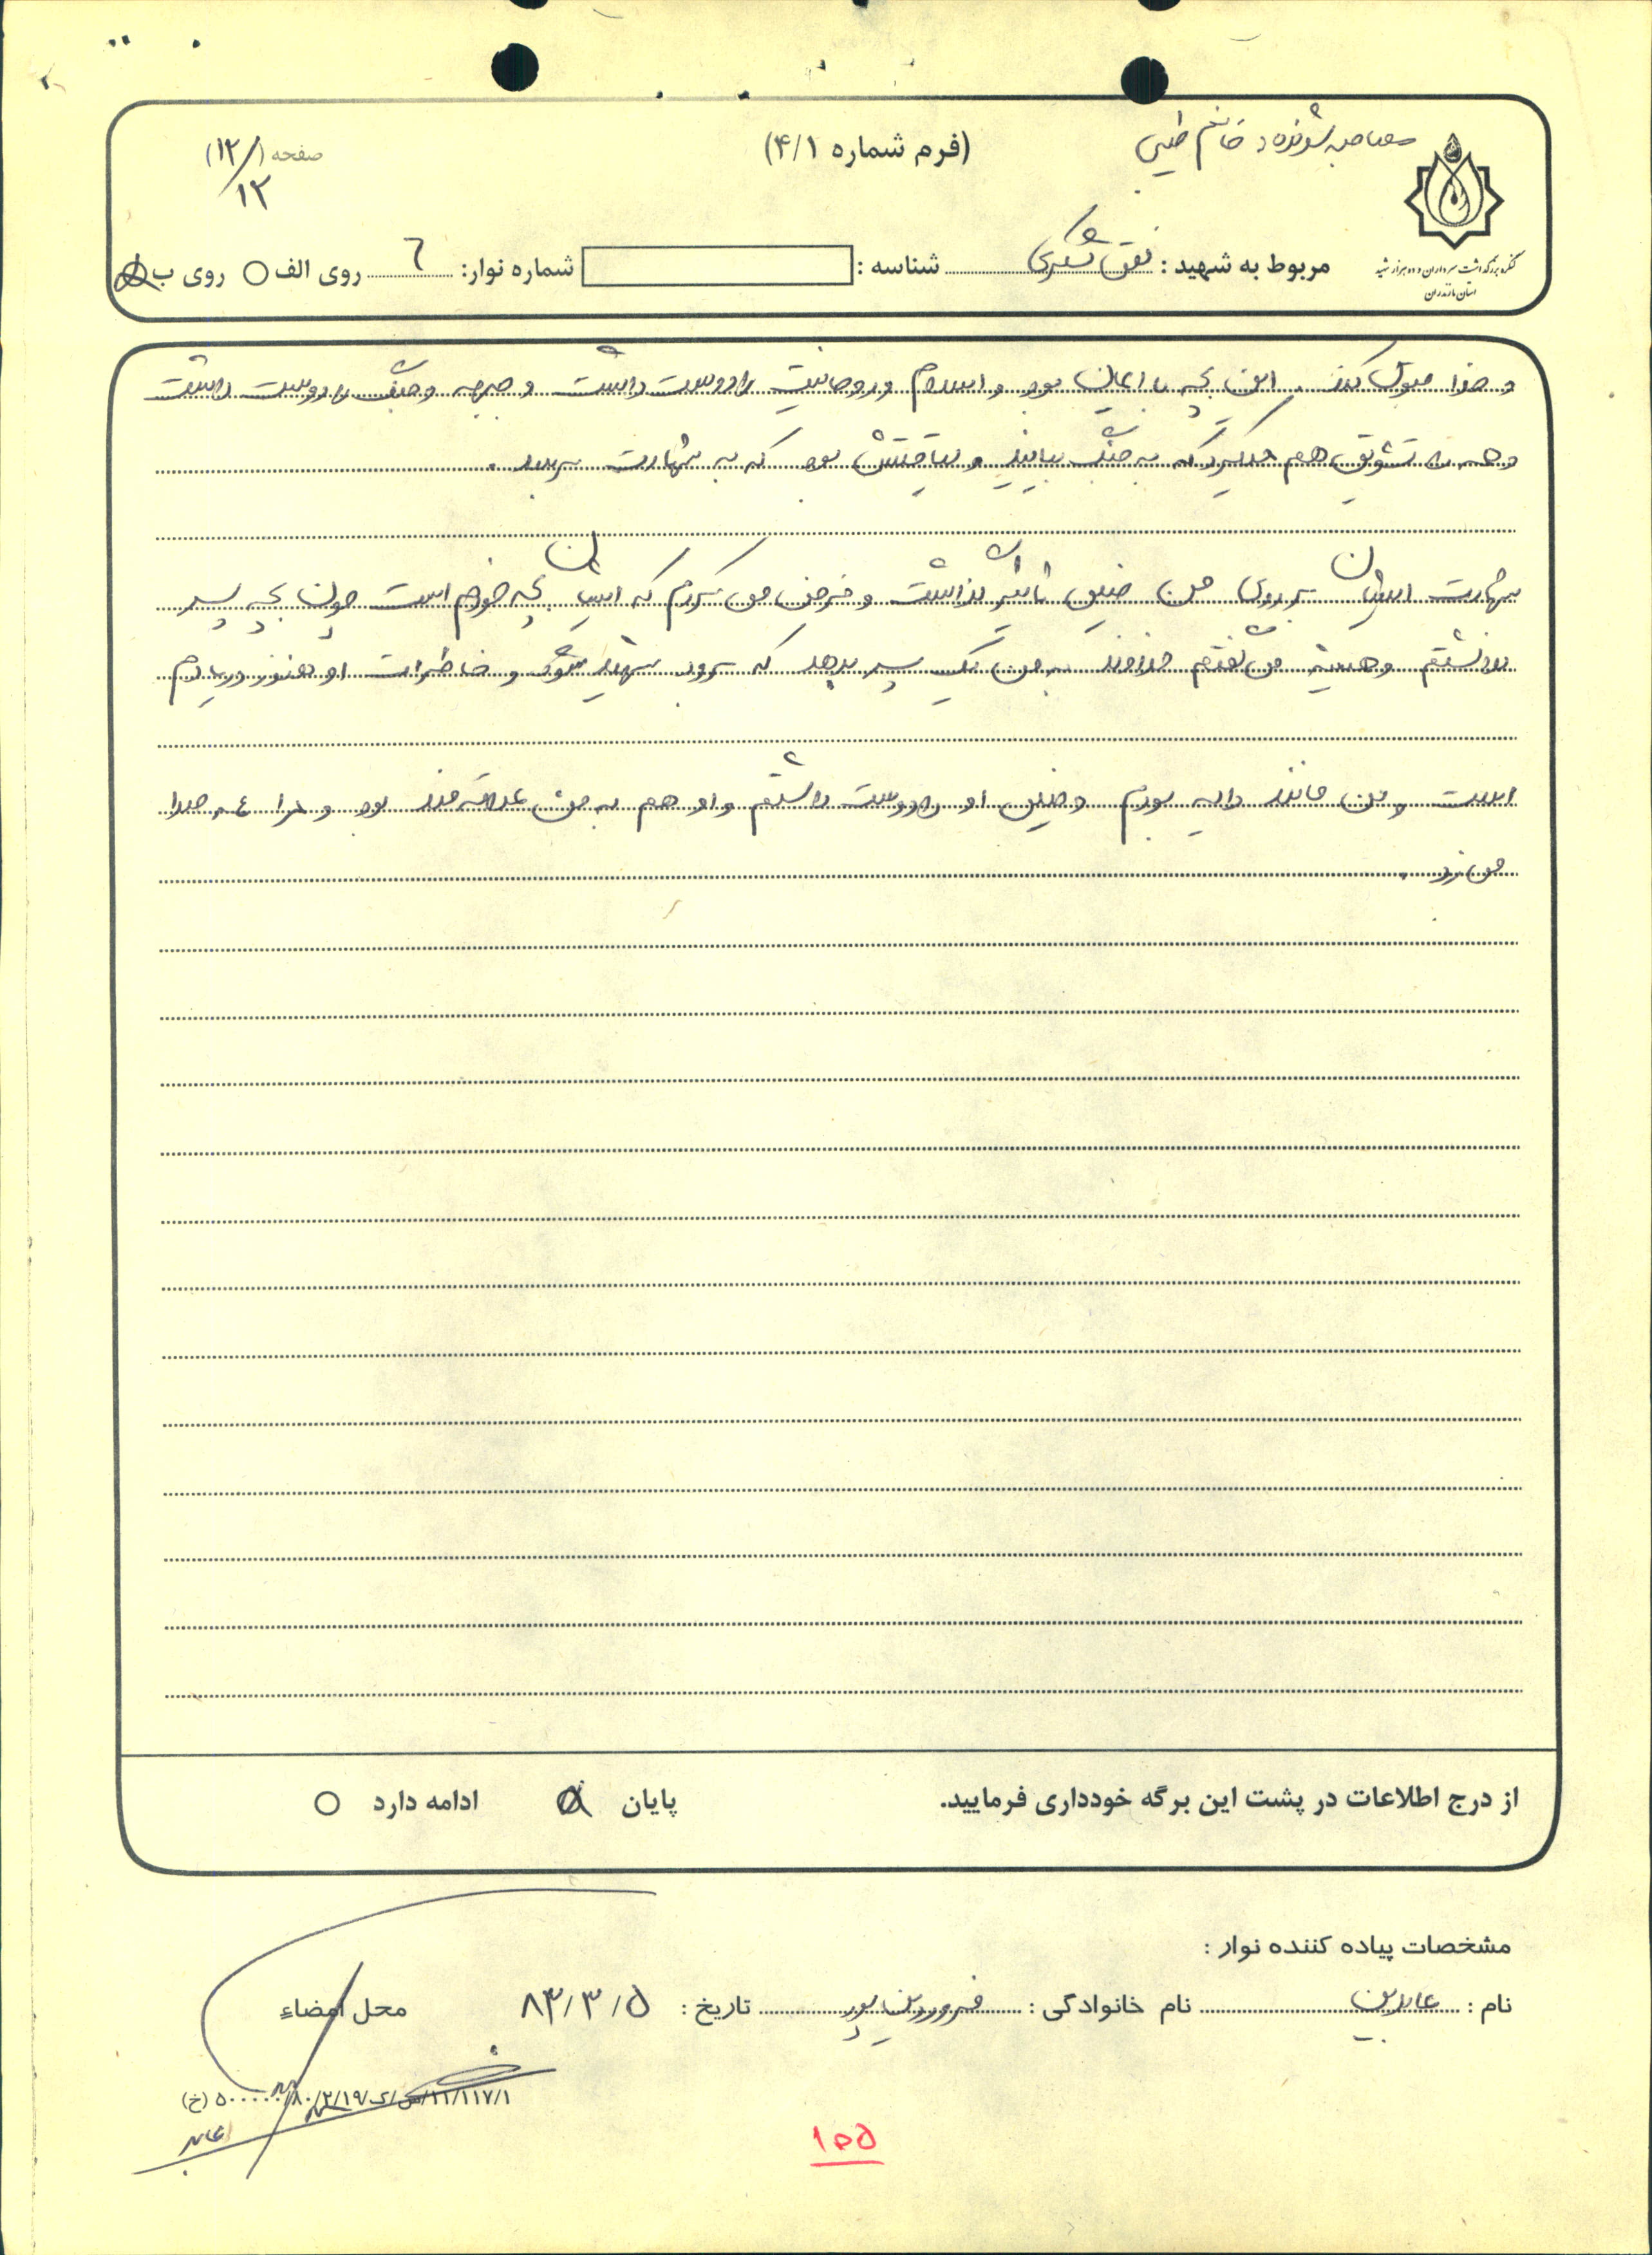 مصاحبه شونده : خانم طیبی
(فرم شماره ۴/۱)
صفحه (۱۲/
۱۲
کنگره بزرگداشت سرداران و ده هزار شهید
استان مازندران
مربوط به شهید : شناسه : شماره نوار: ٦ روی الف روی ب
و خدا قبول کند . این بچه با ایمان بود و اسلام و روحانیت را دوست داشت و جبهه و جنگ را دوست داشت
و همه را تشویق هم میکرد که به جنگ بیایند و لیاقتش بود که به شهادت برسد .
شهادت ایشان بر روی من خیلی تاثیر گذاشت و فرض می کردم که ایشان بچه خودم است چون بچه پسر
نداشتم و همیشه می گفتم خداوند به من یک پسر بدهد که برود شهید شود و خاطرات او هنوز در یادم
است و من مانند دایه بودم و خیلی او را دوست داشتم و او هم به من علاقمند بود و مرا عمه صدا
می زد .
از درج اطلاعات در پشت این برگه خودداری فرمایید.
پایان ادامه دارد
مشخصات پیاده کننده نوار :
نام : عابدین نام خانوادگی : فروردین پور تاریخ : ۸۳/۳/۵ محل امضاء
۱۰۵